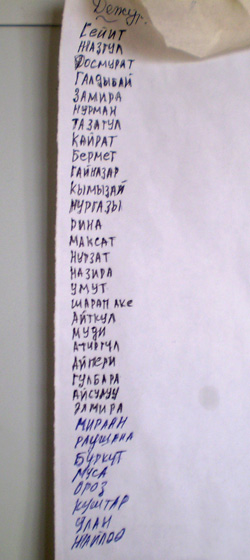 Дежур.
Сейит
Жазгул
Досмурат
Галдыбай
Замира
Нурман
Тазагул
Кайрат
Бермет
Гайназар
Кымызай
Нургазы
Рина
Максат
Нурзат
Назира
Умут
Шаран аке
Айткул
Муди
Атиргул
Айпери
Гулбара
Айсулуу
Элмира
Мирлан
Раушана
Буркут
Муса
Ороз
Куштар
Улан
Жайлоо